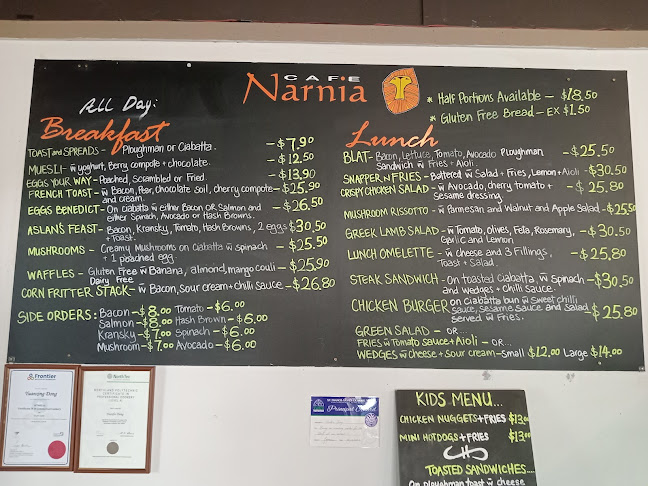 CAFE
Narnia
* Half Portions Available - $18.50
* Gluten Free Bread - EX $1.50
All Day:
Breakfast
TOAST and SPREADS - Ploughman or Ciabatta. - $7.90
MUESLI - w̃ yoghurt, Berry compote + chocolate. - $12.50
EGGS YOUR WAY - Poached, Scrambled or Fried. - $13.90
FRENCH TOAST - w̃ Bacon, Pear, Chocolate Soil, cherry compote and cream. - $25.90
EGGS BENEDICT - On ciabatta w̃ either Bacon OR Salmon and either Spinach, Avocado or Hash Browns. - $26.50
ASLAN'S FEAST - Bacon, Kransky, Tomato, Hash Browns, 2 eggs + Toast. $30.50
MUSHROOMS - Creamy Mushrooms on Ciabatta w̃ spinach + 1 poached egg. - $25.50
WAFFLES - Gluten Free w̃ Banana, almond, mango couli - $25.90
Dairy Free
CORN FRITTER STACK - w̃ Bacon, Sour cream + chilli Sauce. - $26.80
SIDE ORDERS: Bacon - $8.00 Tomato - $6.00
Salmon - $8.00 Hash Brown - $6.00
Kransky - $7.00 Spinach - $6.00
Mushroom - $7.00 Avocado - $6.00
Lunch
BLAT - Bacon, Lettuce, Tomato, Avocado Ploughman Sandwich w̃ Fries + Aioli - $25.50
SNAPPER N FRIES - Battered w̃ Salad + Fries, Lemon + Aioli - $30.50
CRISPY CHICKEN SALAD - w̃ Avocado, cherry tomato + sesame dressing - $25.80
MUSHROOM RISSOTTO - w̃ Parmesan and Walnut and Apple Salad - $25.50
GREEK LAMB SALAD - w̃ Tomato, olives, Feta, Rosemary, Garlic and Lemon - $30.50
LUNCH OMELETTE - w̃ cheese and 3 Fillings, Toast + Salad - $25.80
STEAK SANDWICH - On toasted Ciabatta, w̃ Spinach and Wedges + Chilli Sauce. - $30.50
CHICKEN BURGER on ciabatta bun w̃ Sweet chilli sauce, sesame sauce and Salad served w̃ Fries. - $25.80
GREEN SALAD - OR...
FRIES w̃ Tomato Sauce + Aioli - OR...
WEDGES w̃ cheese + Sour cream - Small $12.00 Large $14.00
Frontier
NorthTec
Principal Award
KIDS MENU...
CHICKEN NUGGETS + FRIES $13.00
MINI HOTDOGS + FRIES $13.00
TOASTED SANDWICHES....
On ploughman toast w̃ cheese